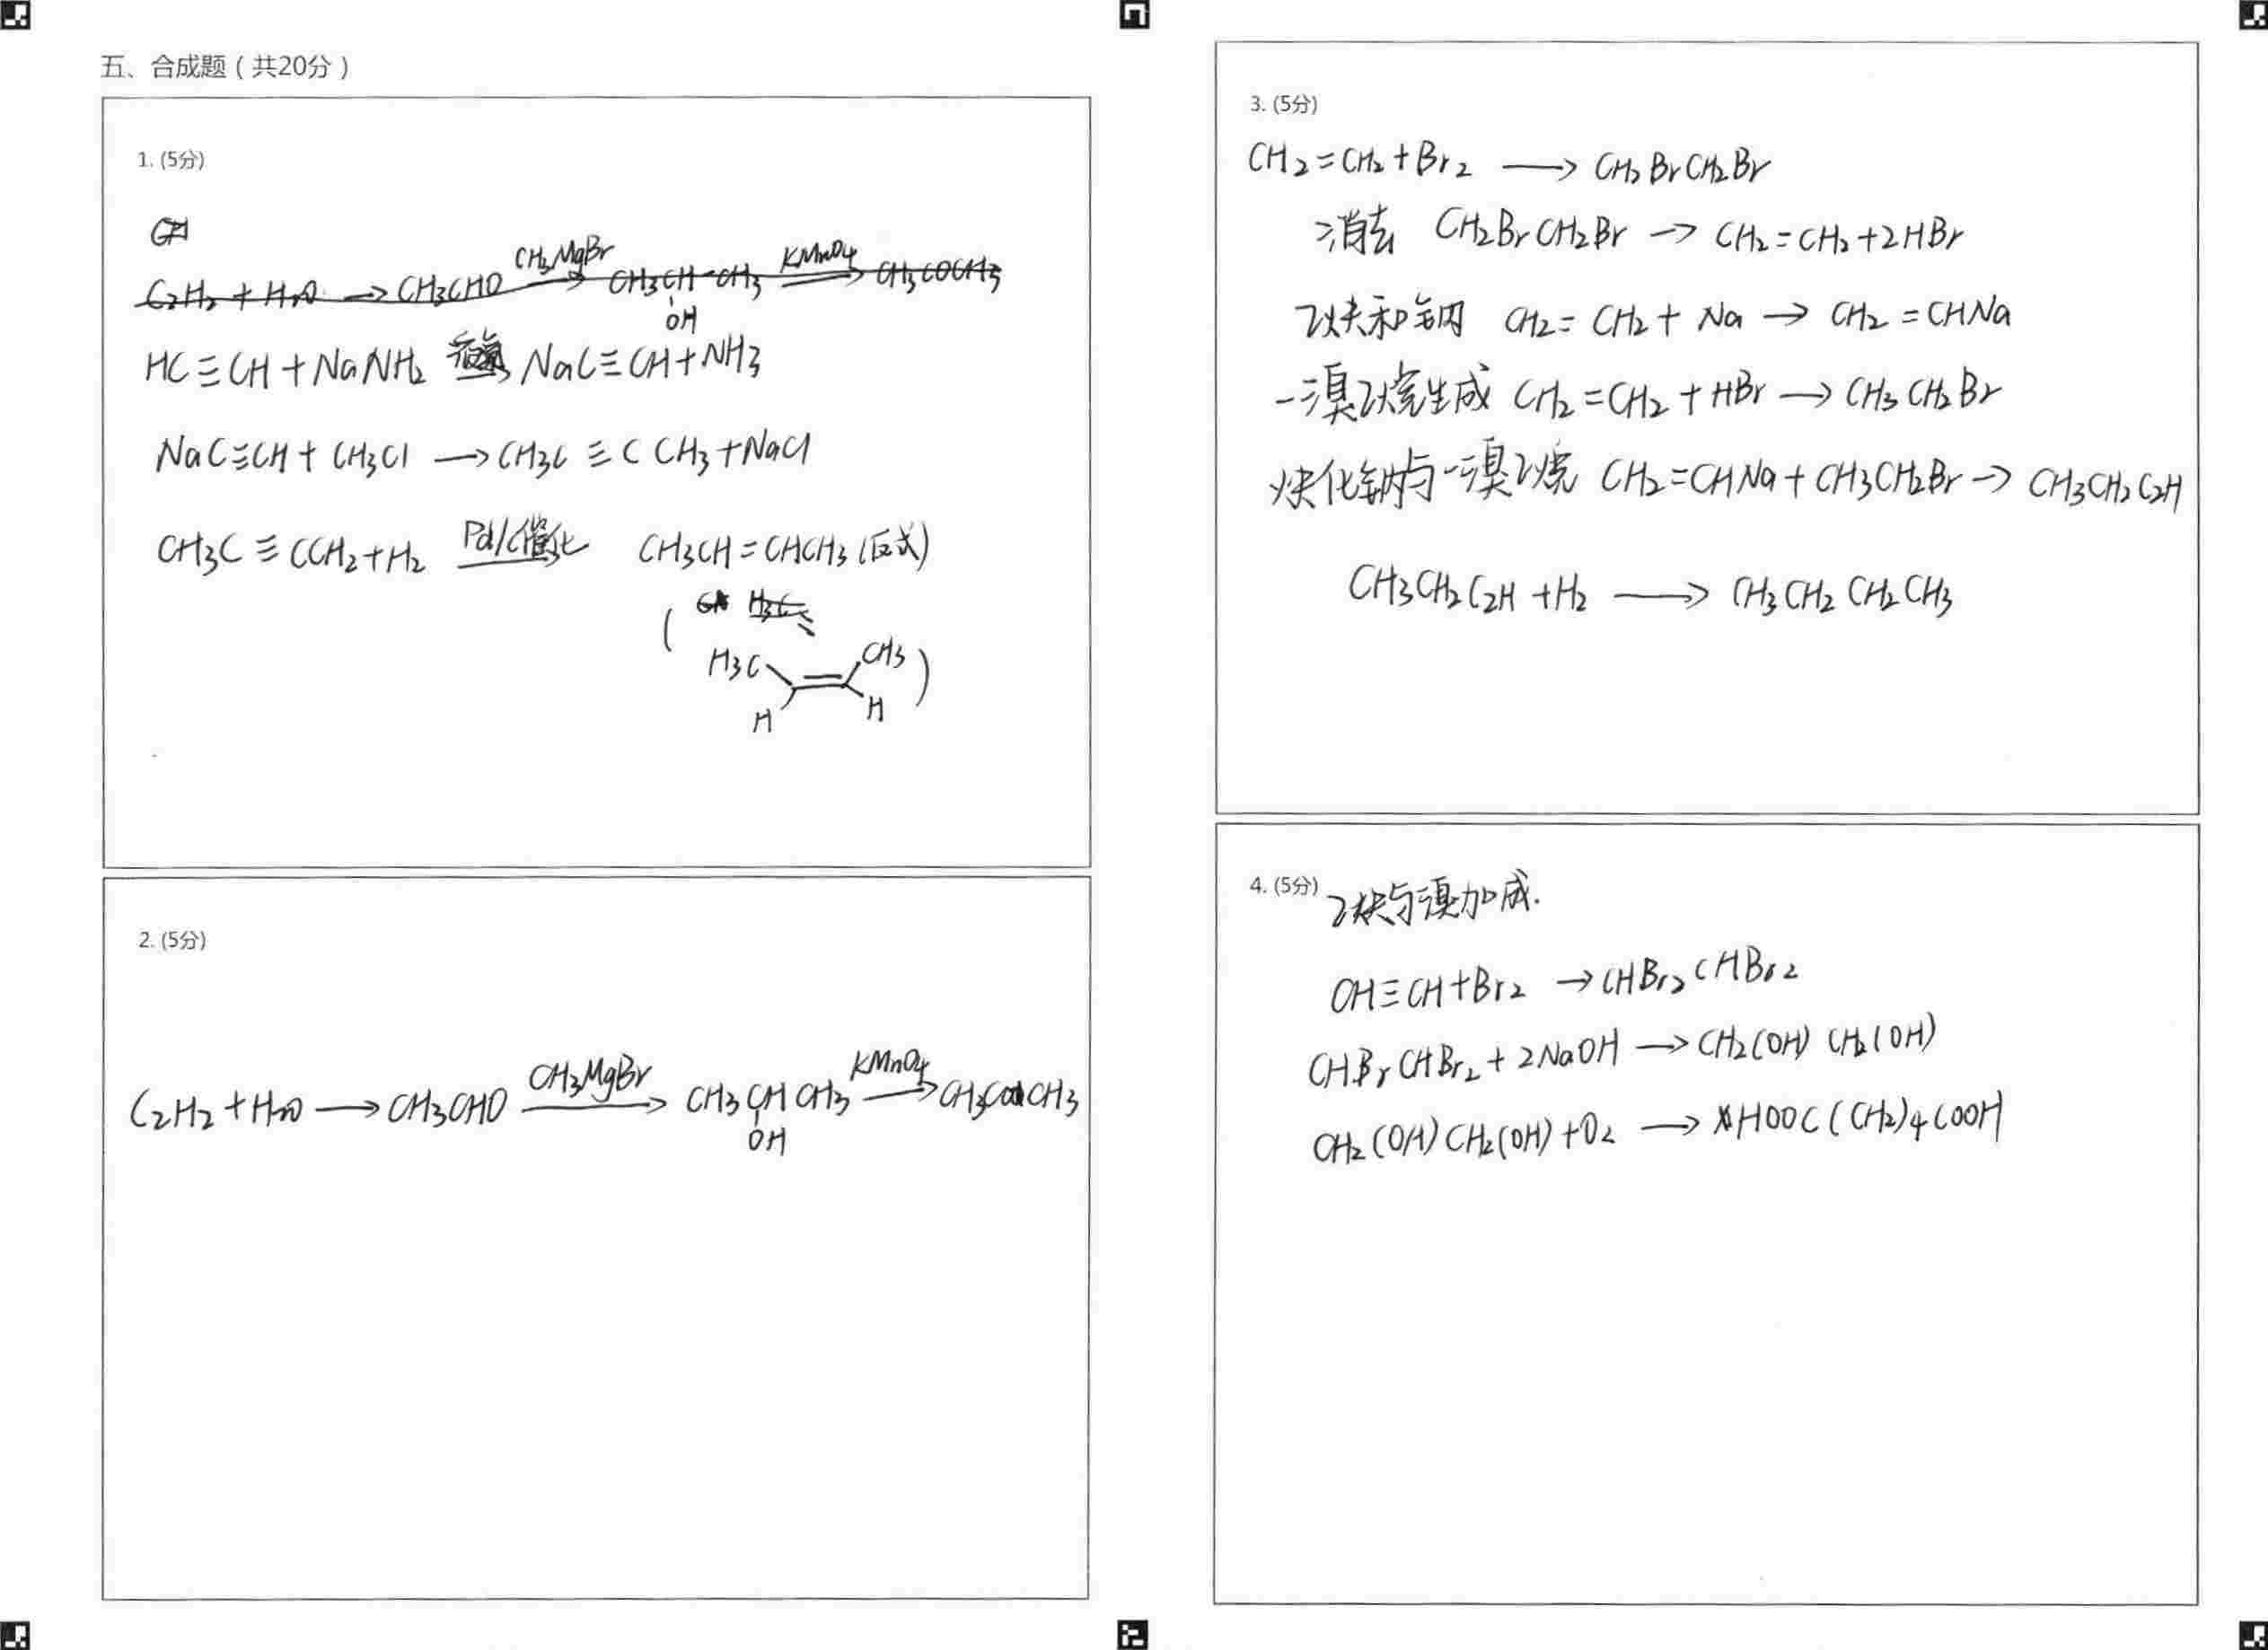 五、合成题（共20分）
1. (5分)
C₂H₂ + H₂O → CH₃CHO CH₃MgBr→ CH₃CH-CH₃ KMnO₄→ CH₃COCH₃
OH
HC≡CH + NaNH₂ 液氨→ NaC≡CH + NH₃
NaC≡CH + CH₃Cl → CH₃C≡CCH₃ + NaCl
CH₃C≡CCH₂ + H₂ Pd/C催化 CH₃CH=CHCH₃ (反式)
H₃C
( H₃C CH₃ )
H H
2. (5分)
C₂H₂ + H₂O → CH₃CHO CH₃MgBr→ CH₃CHCH₃ KMnO₄→ CH₃COCH₃
OH
3. (5分)
CH₂=CH₂ + Br₂ → CH₂BrCH₂Br
消去 CH₂BrCH₂Br → CH₂=CH₂ + 2HBr
乙炔和钠 CH₂=CH₂ + Na → CH₂=CHNa
一溴乙烷生成 CH₂=CH₂ + HBr → CH₃CH₂Br
炔化钠与一溴乙烷 CH₂=CHNa + CH₃CH₂Br → CH₃CH₂C₂H
CH₃CH₂C₂H + H₂ → CH₃CH₂CH₂CH₃
4. (5分) 乙炔与溴加成.
CH≡CH + Br₂ → CHBr₂CHBr₂
CHBrCHBr₂ + 2NaOH → CH₂(OH)CH₂(OH)
CH₂(OH)CH₂(OH) + O₂ → HOOC(CH₂)₄COOH